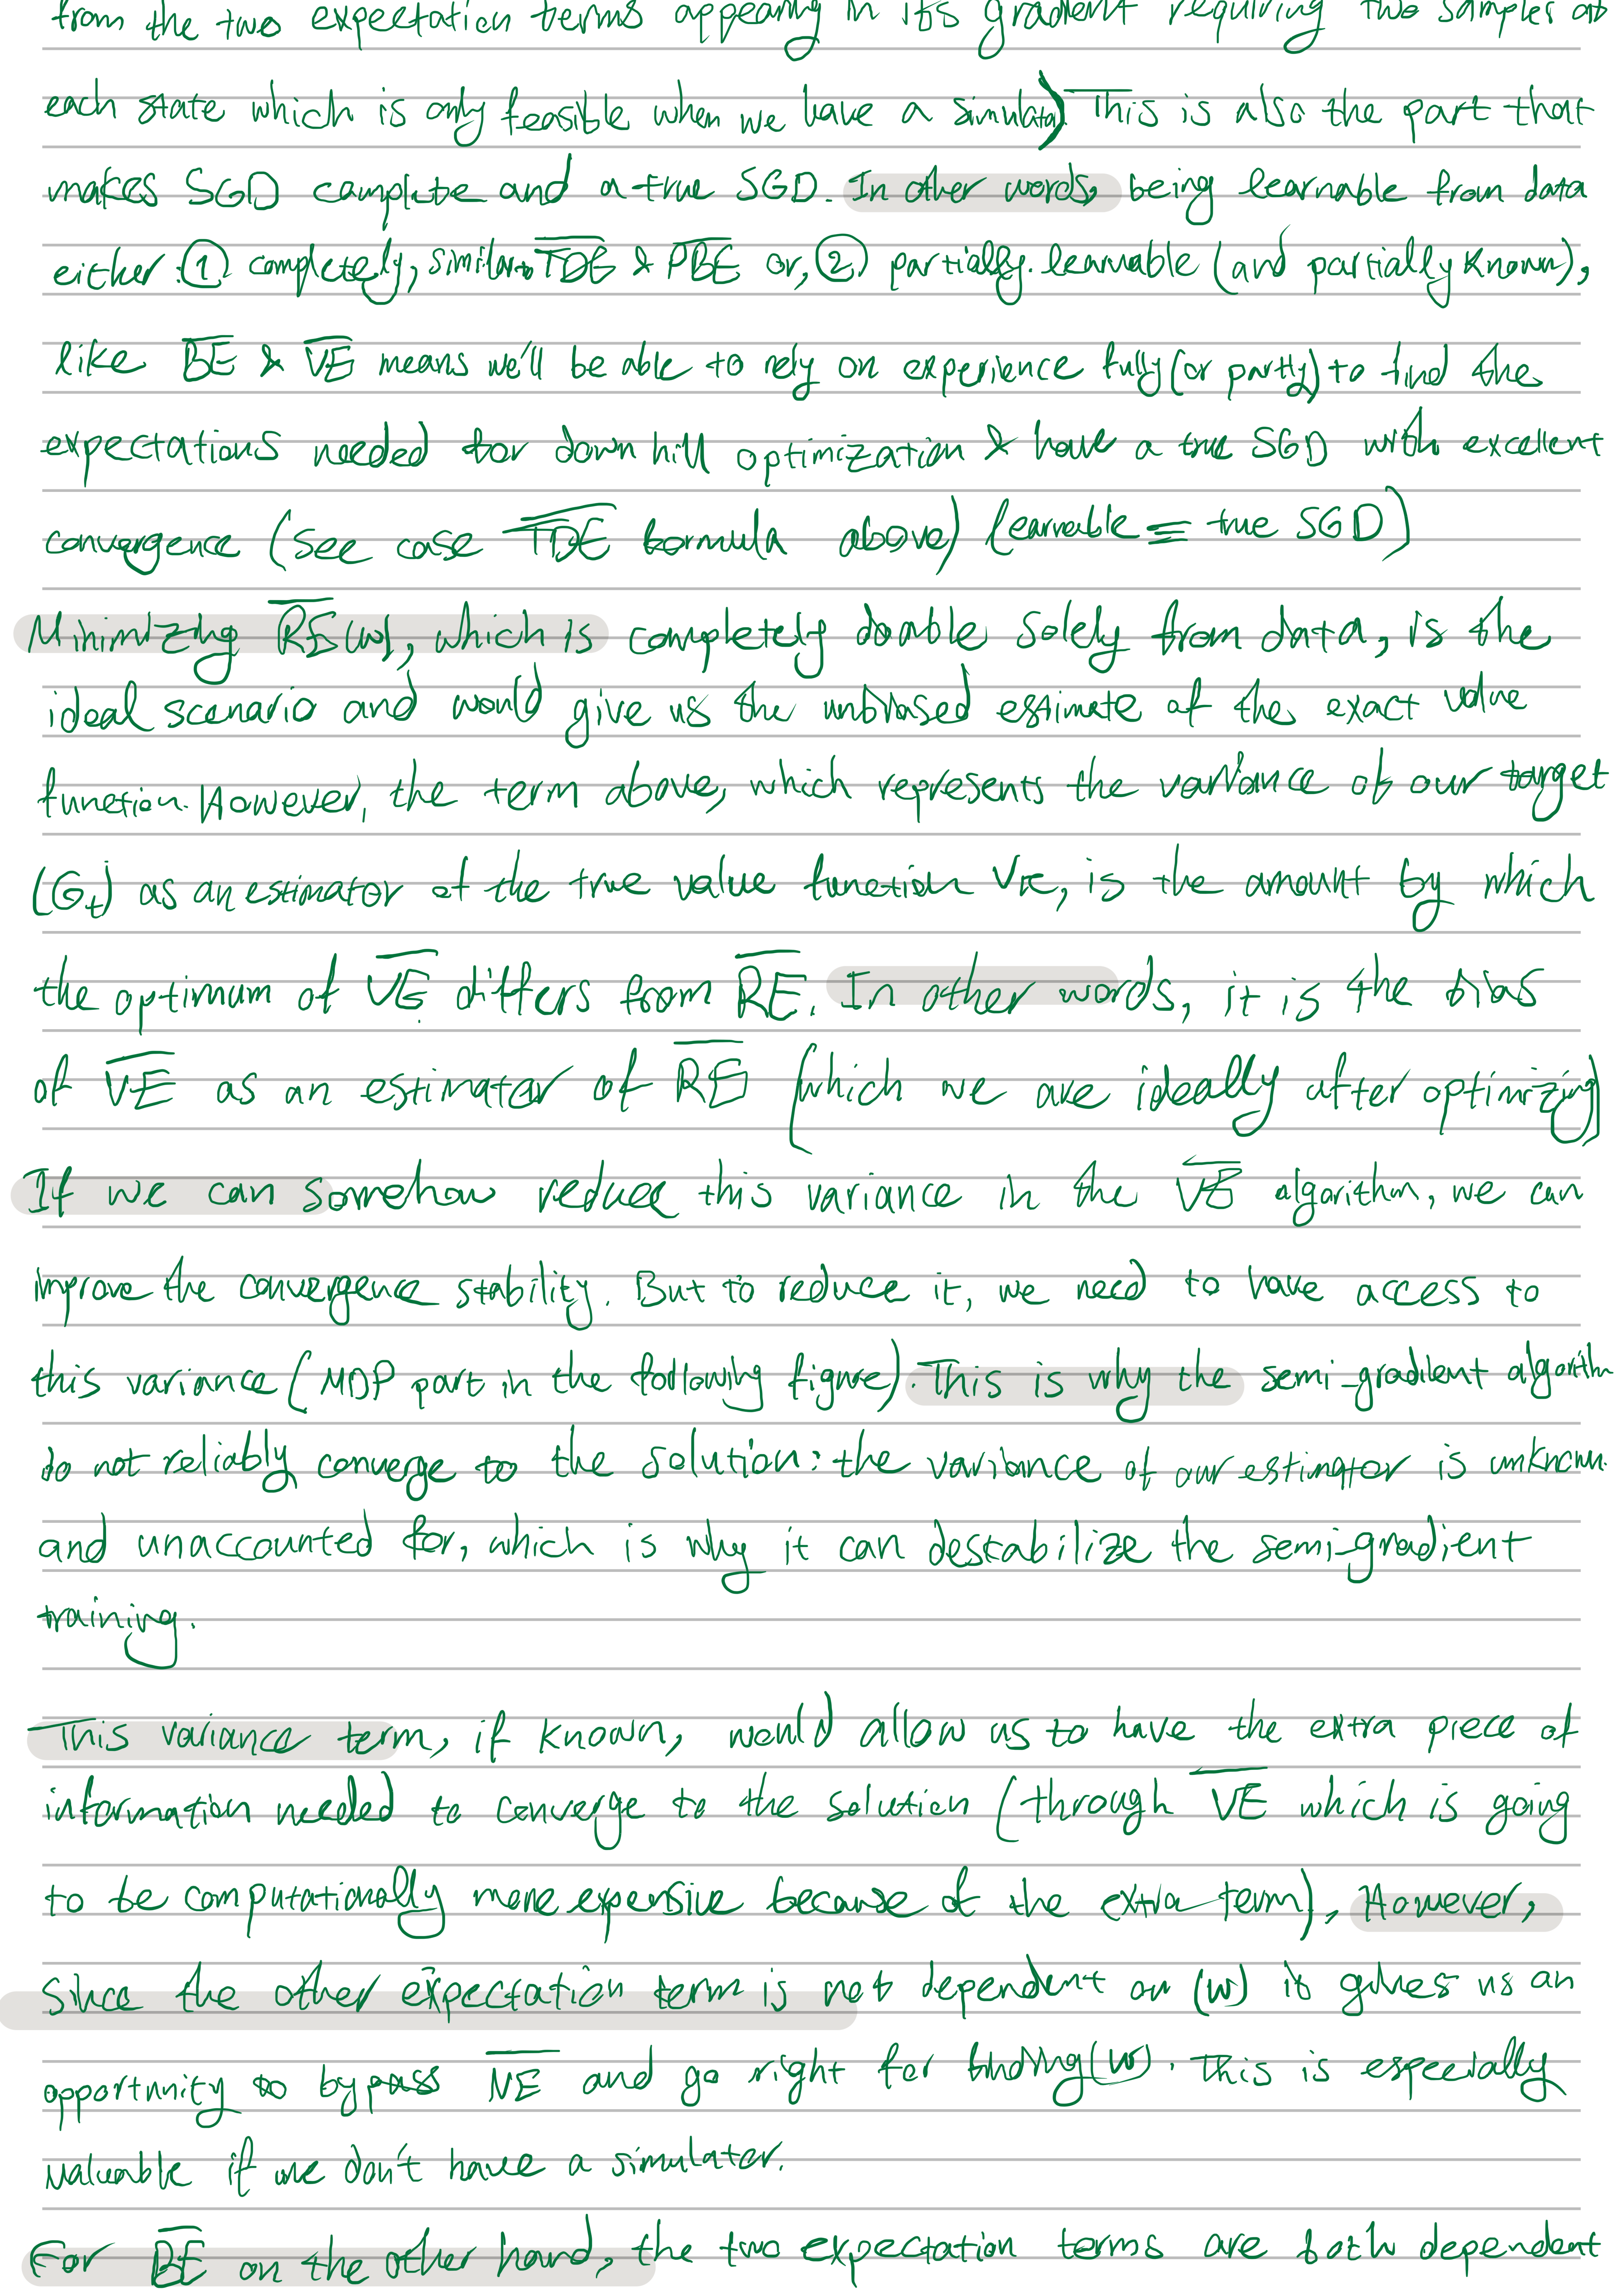 from the two expectation terms appearing in its gradient requiring two samples at
each state which is only feasible when we have a simulator) This is also the part that
makes SGD complete and a true SGD. In other words, being learnable from data
either: ① completely, similar to T̅D̅E̅ & P̅B̅E̅ or, ② partially learnable (and partially known),
like B̅E̅ & V̅E̅ means we'll be able to rely on experience fully (or partly) to find the
expectations needed for down hill optimization & have a true SGD with excellent
convergence (see case T̅D̅E̅ formula above) (learnable ≡ true SGD)
Minimizing R̅E̅(w), which is completely doable solely from data, is the
ideal scenario and would give us the unbiased estimate of the exact value
function. However, the term above, which represents the variance of our target
(Gₜ) as an estimator of the true value function Vπ, is the amount by which
the optimum of V̅E̅ differs from R̅E̅. In other words, it is the bias
of V̅E̅ as an estimator of R̅E̅ (which we are ideally after optimizing)
If we can somehow reduce this variance in the V̅E̅ algorithm, we can
improve the convergence stability. But to reduce it, we need to have access to
this variance (MDP part in the following figure). This is why the semi-gradient algorithm
do not reliably converge to the solution: the variance of our estimator is unknown
and unaccounted for, which is why it can destabilize the semi-gradient
training.
This variance term, if known, would allow us to have the extra piece of
information needed to converge to the solution (through V̅E̅ which is going
to be computationally more expensive because of the extra term), However,
Since the other expectation term is not dependent on (w) it gives us an
opportunity to bypass V̅E̅ and go right for finding (w). This is especially
valuable if we don't have a simulator.
For B̅E̅ on the other hand, the two expectation terms are both dependent